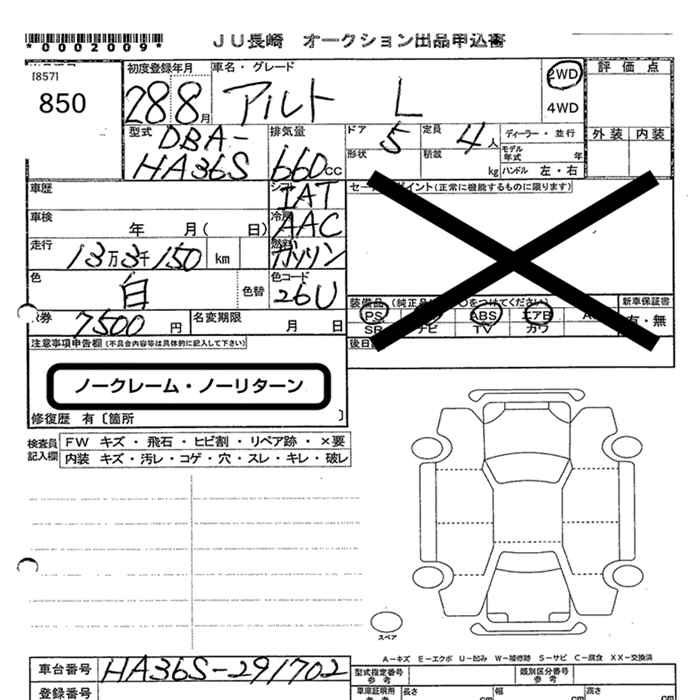 *0002009* JU長崎 オークション出品申込書
[857]
850
初度登録年月 車名・グレード
28 8月 アルト L
2WD
4WD
評価点
外装 内装
型式 DBA-
HA36S
排気量
660cc
ドア 5 定員 4人
形状 積載 kg
ディーラー・並行
モデル年式 年
ハンドル 左・右
車歴 シフト IAT
車検 年 月( 日) 冷房 AAC
走行 13万3千150 km 燃料 ガソリン
色 白 色替 色コード 26U
券 7500円 名変期限 月 日
ポイント(正常に機能するものに限ります)
装備品(純正品 をつけてください) 新車保証書
PS ABS エアB 有・無
SR ナビ TV カワ
後日
注意事項申告欄(不具合内容等は具体的に記入して下さい)
ノークレーム・ノーリターン
修復歴 有〔箇所 〕
検査員記入欄
FW キズ・飛石・ヒビ割・リペア跡・×要
内装 キズ・汚レ・コゲ・穴・スレ・キレ・破レ
スペア
A-キズ E-エクボ U-凹み W-補修跡 S-サビ C-腐食 XX-交換済
車台番号 HA36S-291702
登録番号
型式指定番号 参考 類別区分番号 参考
車庫証明用 参考 長さ cm 幅 cm 高さ cm